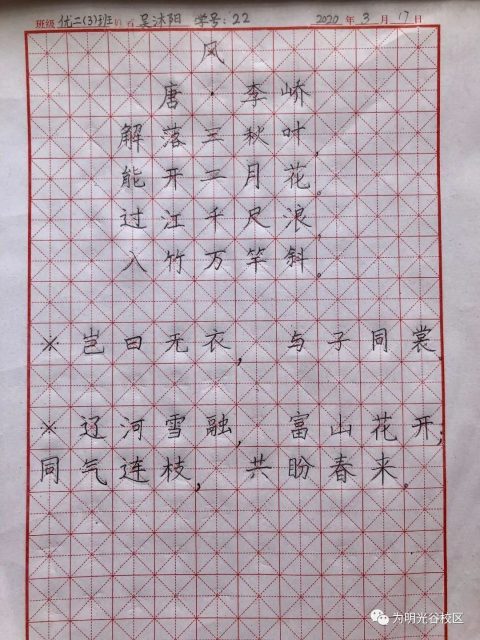 班级 优二(3)班 姓名 吴沐阳 学号:22 2020年3月17日
风
唐·李峤
解落三秋叶,
能开二月花。
过江千尺浪,
入竹万竿斜。
※岂曰无衣,与子同裳.
※辽河雪融,富山花开;
同气连枝,共盼春来。
为明光谷校区